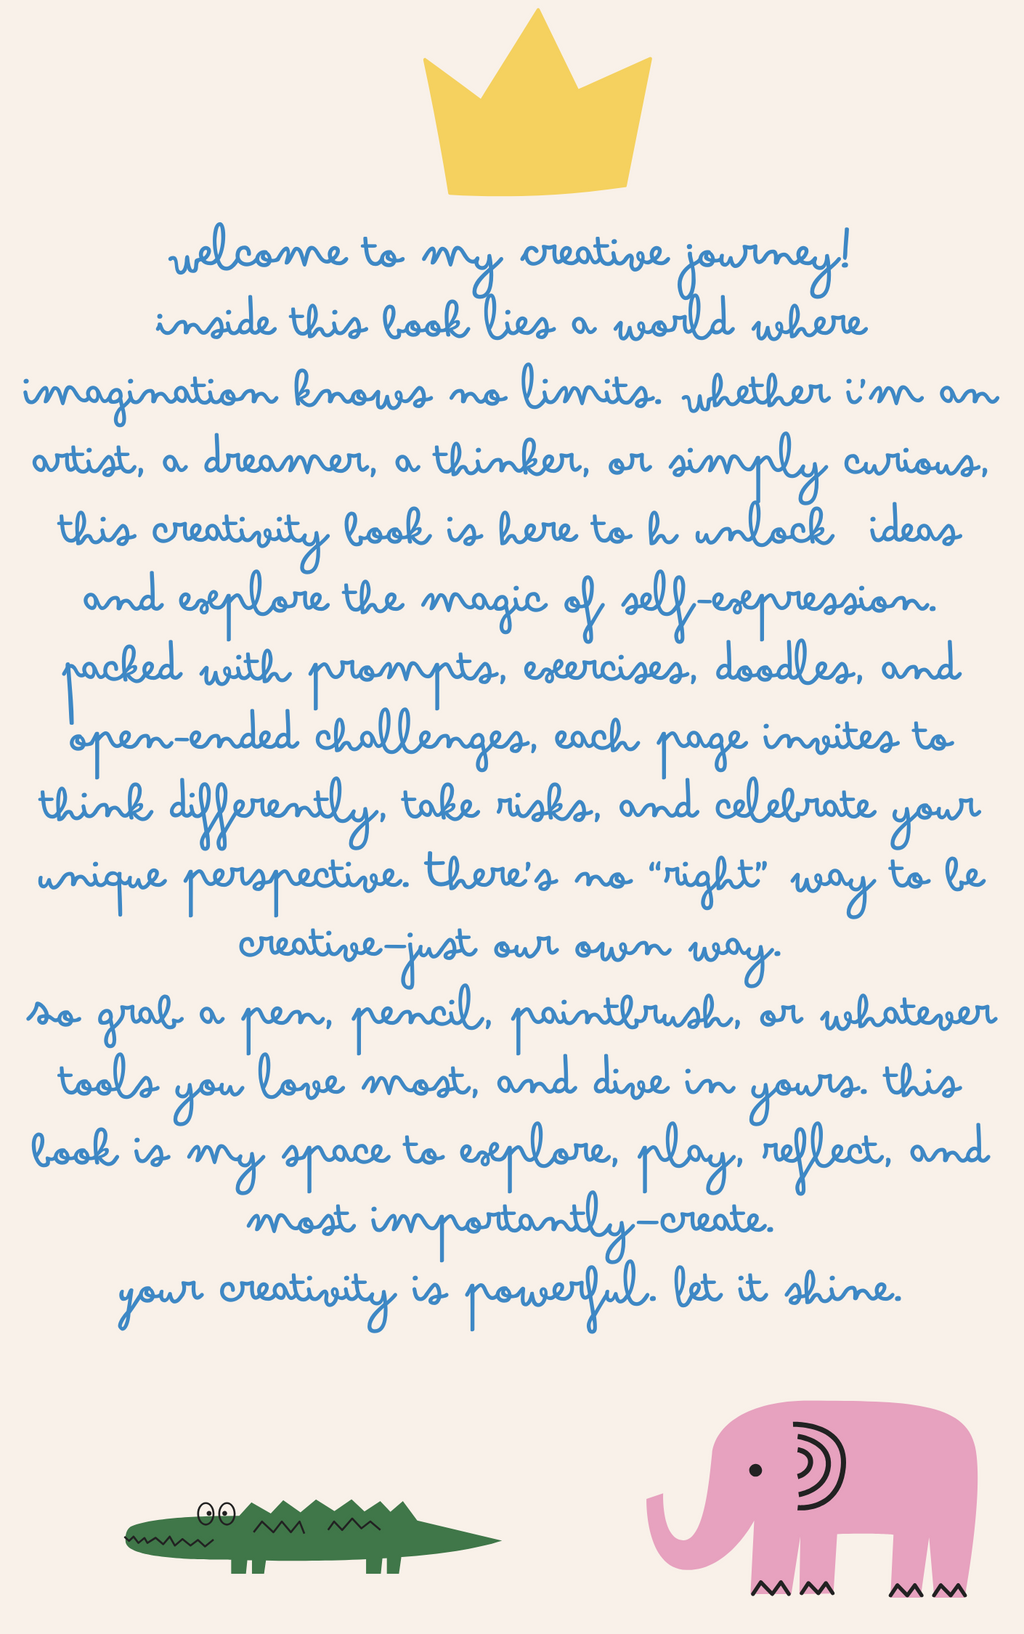 welcome to my creative journey!
inside this book lies a world where
imagination knows no limits. whether i'm an
artist, a dreamer, a thinker, or simply curious,
this creativity book is here to h unlock ideas
and explore the magic of self-expression.
packed with prompts, exercises, doodles, and
open-ended challenges, each page invites to
think differently, take risks, and celebrate your
unique perspective. There's no “right” way to be
creative—just our own way.
so grab a pen, pencil, paintbrush, or whatever
tools you love most, and dive in yours. this
book is my space to explore, play, reflect, and
most importantly—create.
your creativity is powerful. let it shine.